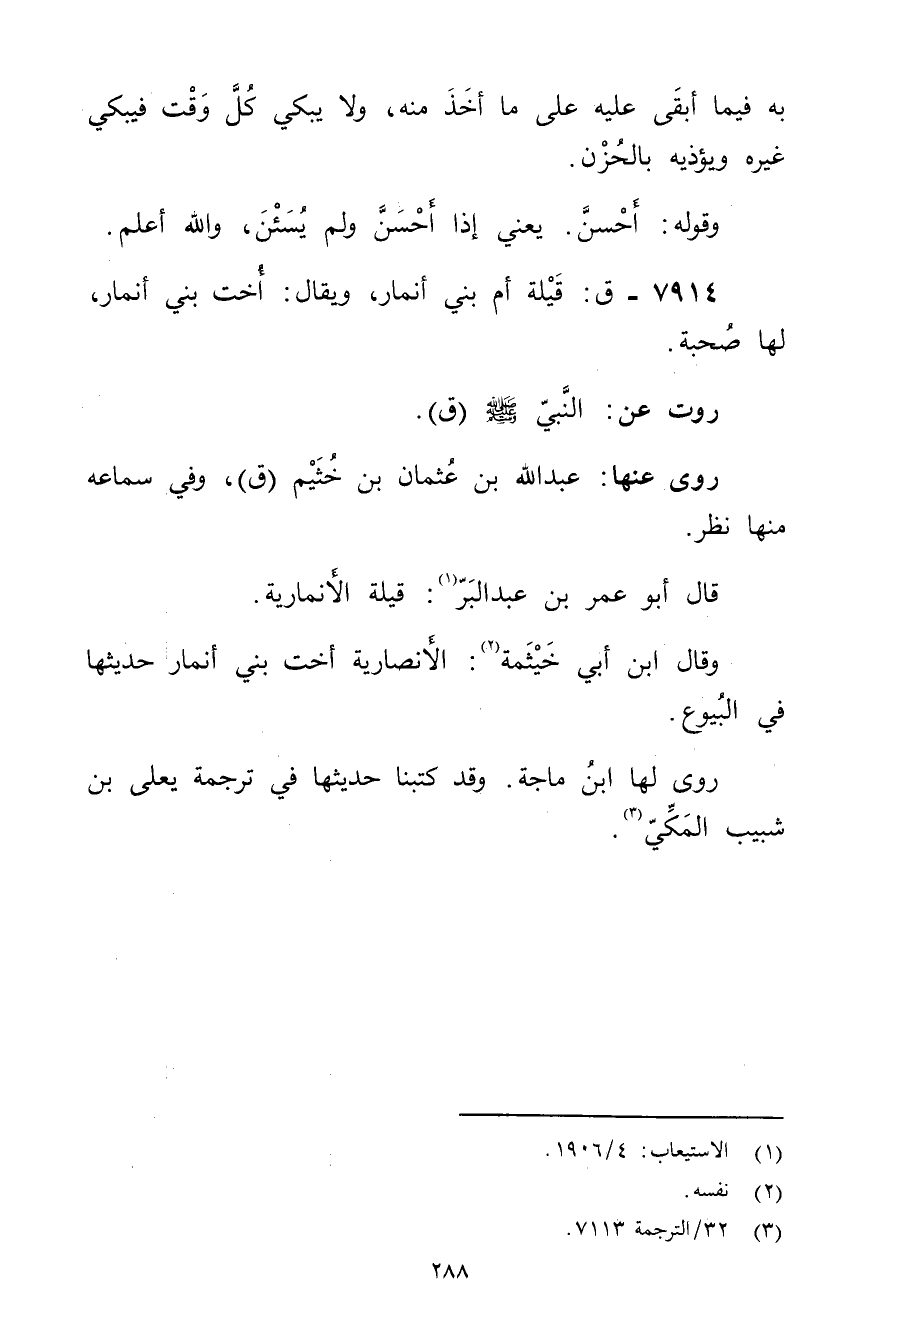 به فيما أبقَى عليه على ما أخَذَ منه، ولا يبكي كُلَّ وَقْت فيبكي
غيره ويؤذيه بالحُزْن.
وقوله: أَحْسنَّ. يعني إذا أَحْسَنَّ ولم يُسَئْنَ، والله أعلم.
٧٩١٤ ـ ق: قَيْلة أم بني أنمار، ويقال: أُخت بني أنمار،
لها صُحبة.
روت عن: النَّبيّ ﷺ (ق).
روى عنها: عبدالله بن عُثمان بن خُثَيْم (ق)، وفي سماعه
منها نظر.
قال أبو عمر بن عبدالبَرّ(١): قيلة الأَنمارية.
وقال ابن أبي خَيْثَمة(٢): الأَنصارية أخت بني أنمار حديثها
في البُيوع.
روى لها ابنُ ماجة. وقد كتبنا حديثها في ترجمة يعلى بن
شبيب المَكِّيّ(٣).
(١) الاستيعاب: ٤/١٩٠٦.
(٢) نفسه.
(٣) ٣٢/الترجمة ٧١١٣.
٢٨٨